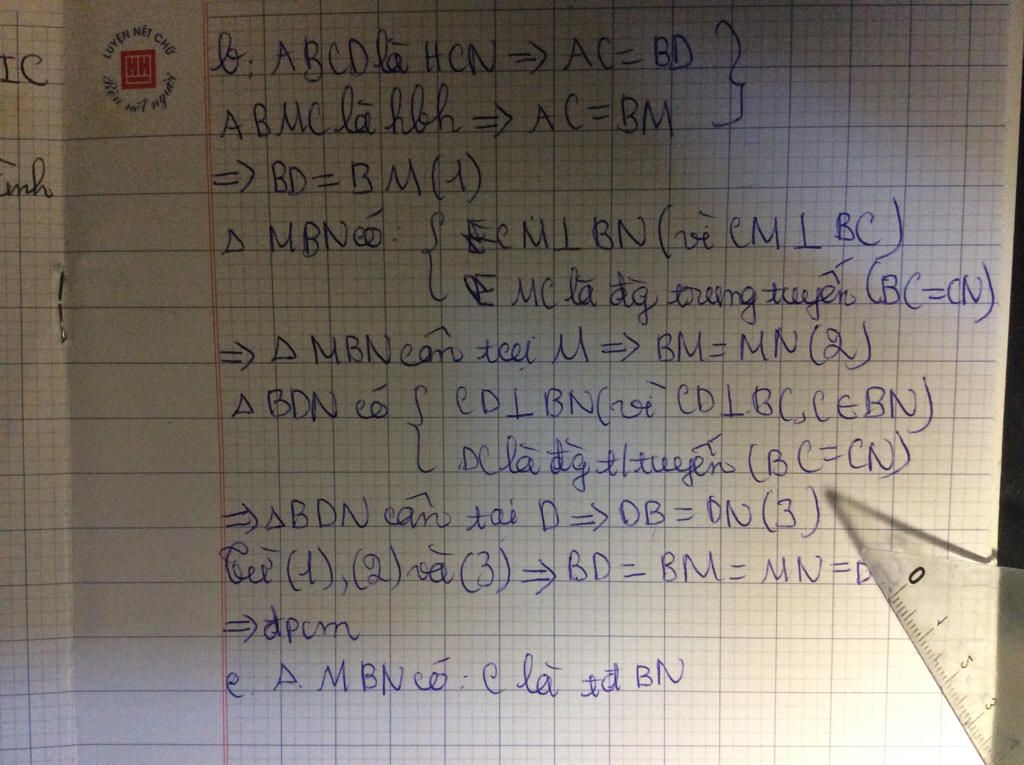 IC
LUYỆN NÉT CHỮ
HH
Rèn nết người
b. ABCD là HCN => AC = BD
ABMC là hbh => AC = BM
=> BD = BM (1)
Δ MBN có: CM ⊥ BN (vì CM ⊥ BC)
MC là đg trung tuyến (BC = CN)
=> Δ MBN cân tại M => BM = MN (2)
Δ BDN có CD ⊥ BN (vì CD ⊥ BC, C ∈ BN)
DC là đg t/tuyến (BC = CN)
=> Δ BDN cân tại D => DB = DN (3)
Từ (1), (2) và (3) => BD = BM = MN = D
=> đpcm
c. Δ. MBN có: C là tđ BN
0
1